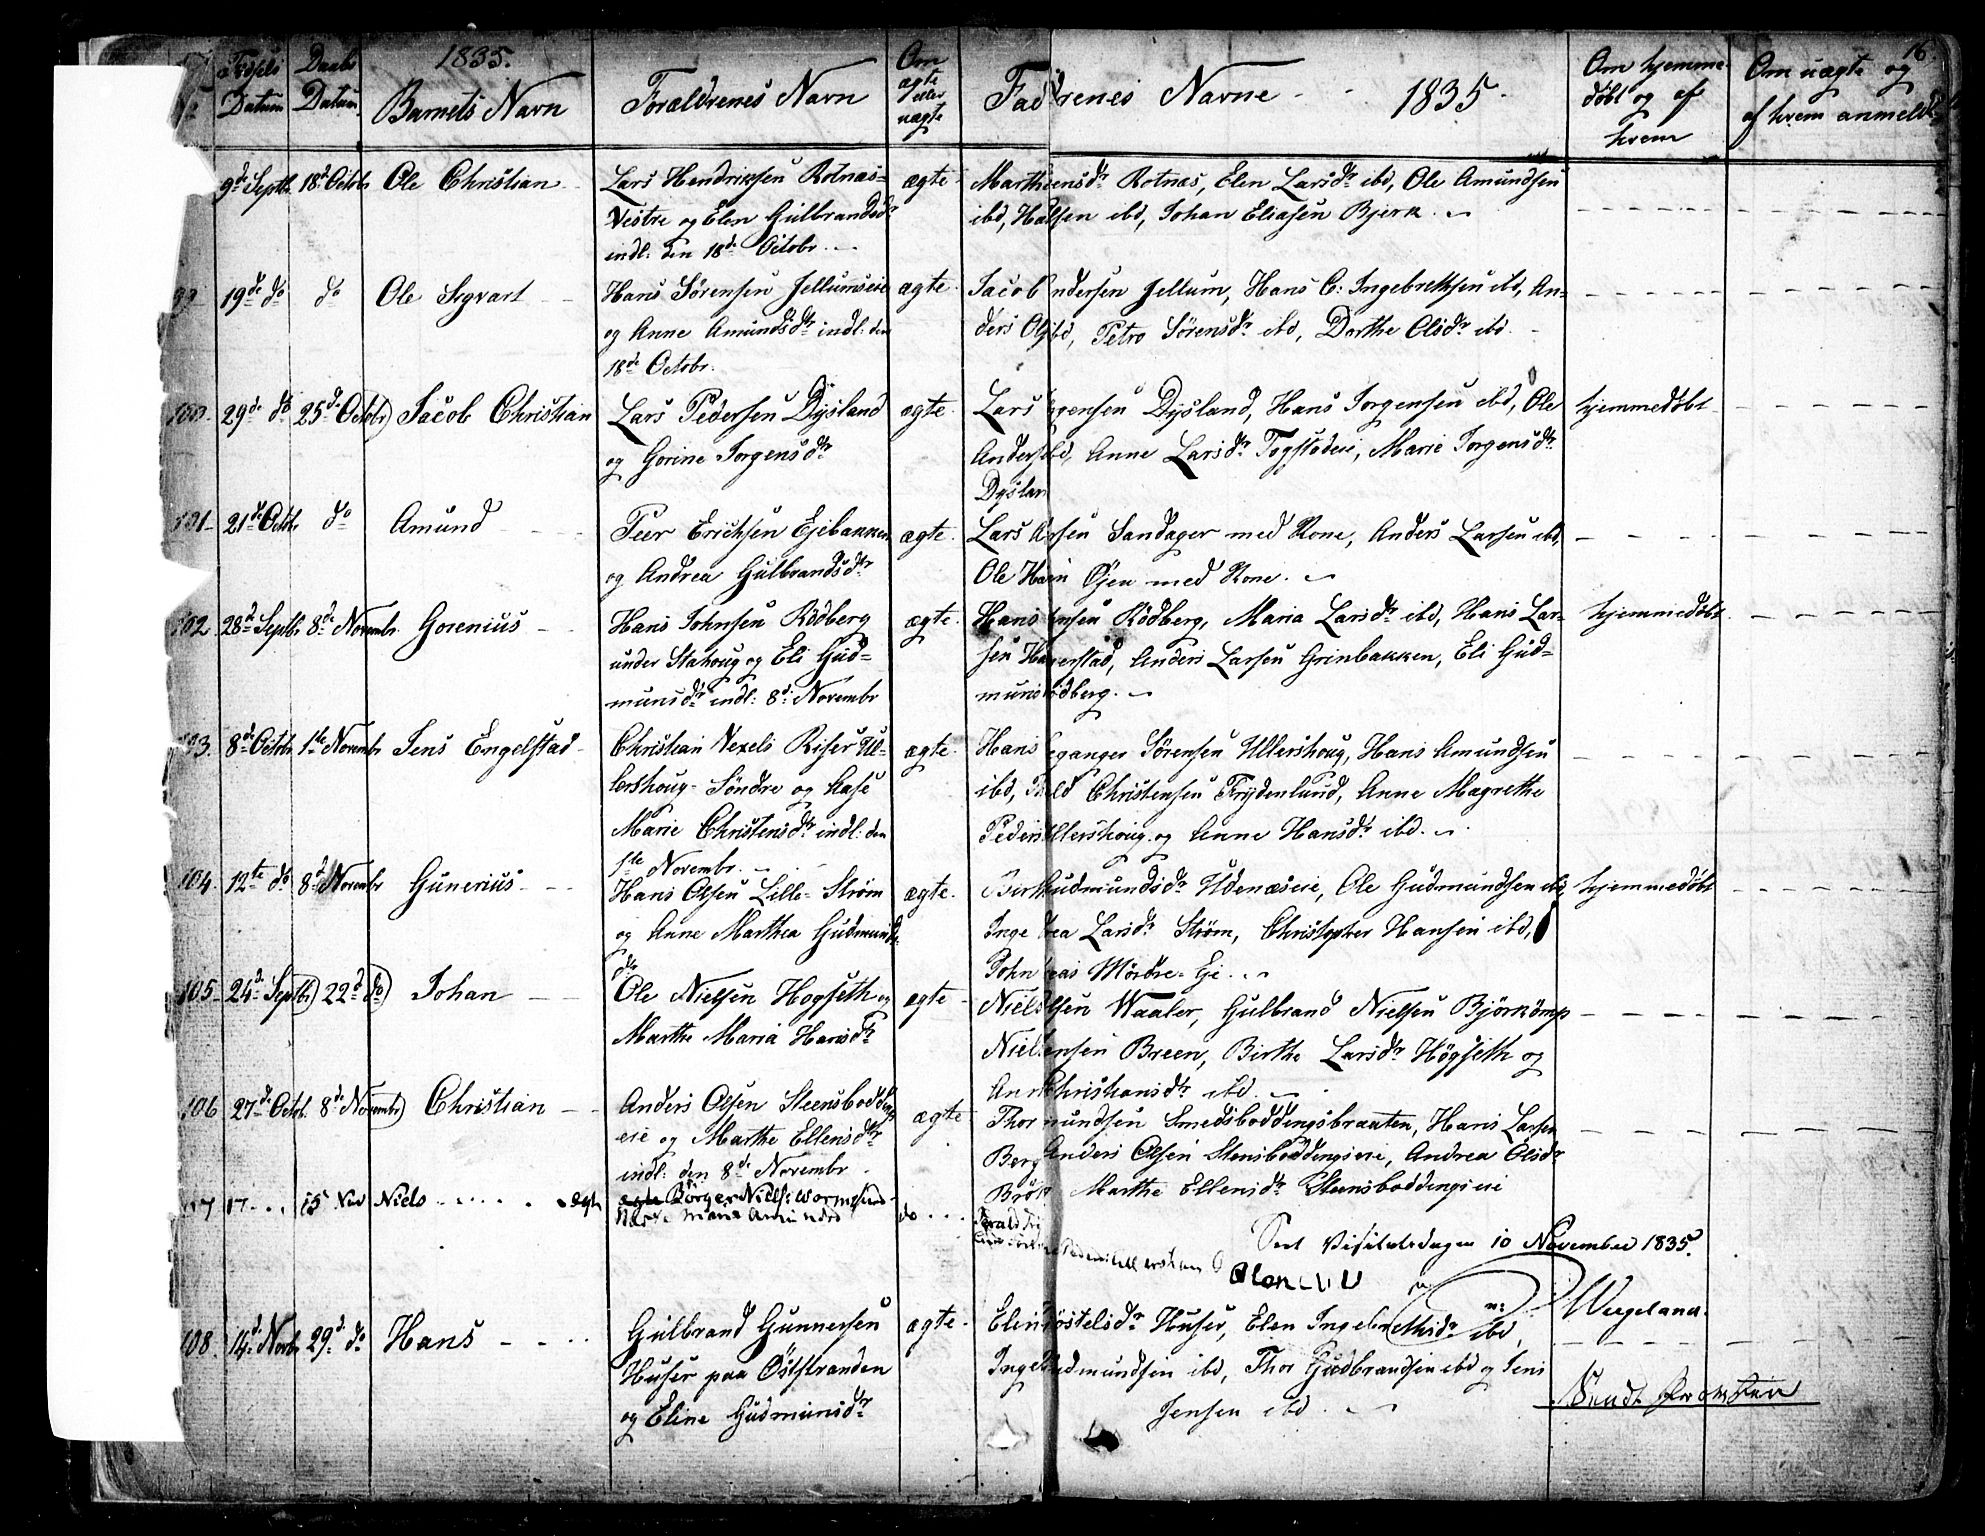 1835.
Fødsels Datum
Daabs Datum
Barnets Navn
Forældrenes Navn
Om ægte eller uægte
Fadrenes Navne - - 1835.
Om hjemmedøbt og af hvem
Om uægte og af hvem anmeldt
16.
9de Septbr 18d Octobr Ole Christian
Lars Hendriksen Rotnæs-
Vestre og Elen Gulbrandsdr
indl: den 18de Octobr.
ægte
Marthe ensdr Rotnæs, Elen Larsdr ibd, Ole Amundsen
ibd, Ha lsen ibd, Johan Eliasen Bjerk.
99 19de do do Ole Sigvart
Hans Sørensen Jellumseie
og Anne Amundsdr indl: den
18de Octobr.
ægte
Jacob ndersen Jellum, Hans C: Ingebrethsen ibd, An-
ders Ol ibd, Petro Sørensdr ibd, Dorthe Olsdr ibd.
100. 29de do 25de Octobr Jacob Christian
Lars Pedersen Dysland
og Gorine Jorgensdr
ægte
Lars rgensen Dysland, Hans Jorgensen ibd, Ole
Anders ibd, Anne Larsdr Togstadeie, Marie Jorgensdr
Dyslan
hjemmedøbt
101 21de Octbr do Amund
Peer Erichsen Ejebakken
og Andrea Gulbrandsdr
ægte.
Lars rsen Sandager med Kone, Anders Larsen ibd,
Ole Ha n Øjen med Kone.
102 28d Septbr 8de Novembr Gorenius
Hans Johnsen Rödberg
under Stahoug og Eli Gud-
munsdr indl: 8de Novembr
ægte.
Hans nsen Rödberg, Maria Larsdr ibd, Hans Lar-
sen Ha erstad, Anders Larsen Grinbakken, Eli Gud-
muns ödberg.
hjemmedøbt
103. 8de Octobr 1ste Novembr Jens Engelstad
Christian Vexels Riser Ul-
lershoug Söndre og Aase
Marie Christensdr indl: den
1ste Novembr.
ægte.
Hans ganger Sørensen Ullershoug, Hans Amundsen
ibd, ld Christensen Frydenlund, Anne Magrethe
Peders Ullershoug og Anne Hansdr ibd.
104. 12te do 8d Novembr Gunerius
Hans Olsen Lille-Strøm
og Anne Marthea Gudmunds-
dr
ægte.
Birth Gudmundsdr Udenæseie, Ole Gudmundsen ibd,
Inge ea Larsdr Strøm, Christopher Hansen ibd,
John eas Mordre-Eje.
hjemmedøbt
105. 24d Septbr 22d do Johan
Ole Nielsen Hogseth og
Marthe Maria Hansdr
ægte
Niels lsen Waaler, Gulbrand Nielsen Björkömp
Niel ensen Breen, Birthe Larsdr Högseth og
An Christiansdr ibd.
106 27de Octbr. 8de Novembr Christian
Anders Olsen Steensbodding-
eie og Marthe Ellensdr
indl: den 8de Novembr
ægte
Thor mundsen Smedsboddingsbraaten, Hans Larsen
Berg Anders Olsen Stensboddingseie, Andrea Olsdr
Brö Marthe Ellensdr Steensboddingseie
107 17 15 Nov Niels ægte
Borger Niels Wormsund
Marie Amundsd
do
Seet Visitatsdagen 10 November 1835.
Wergeland.
108. 14d Novbr 29d do Hans
Gulbrand Gunnersen
Huser paa Øststranden
og Eline Gudmunsdr
ægte
Elen östelsdr Huser, Elen Ingebrethsdr ibd,
Inge Gudmundsen ibd, Thor Gudbrandsen ibd og Jens
Jensen ibd.